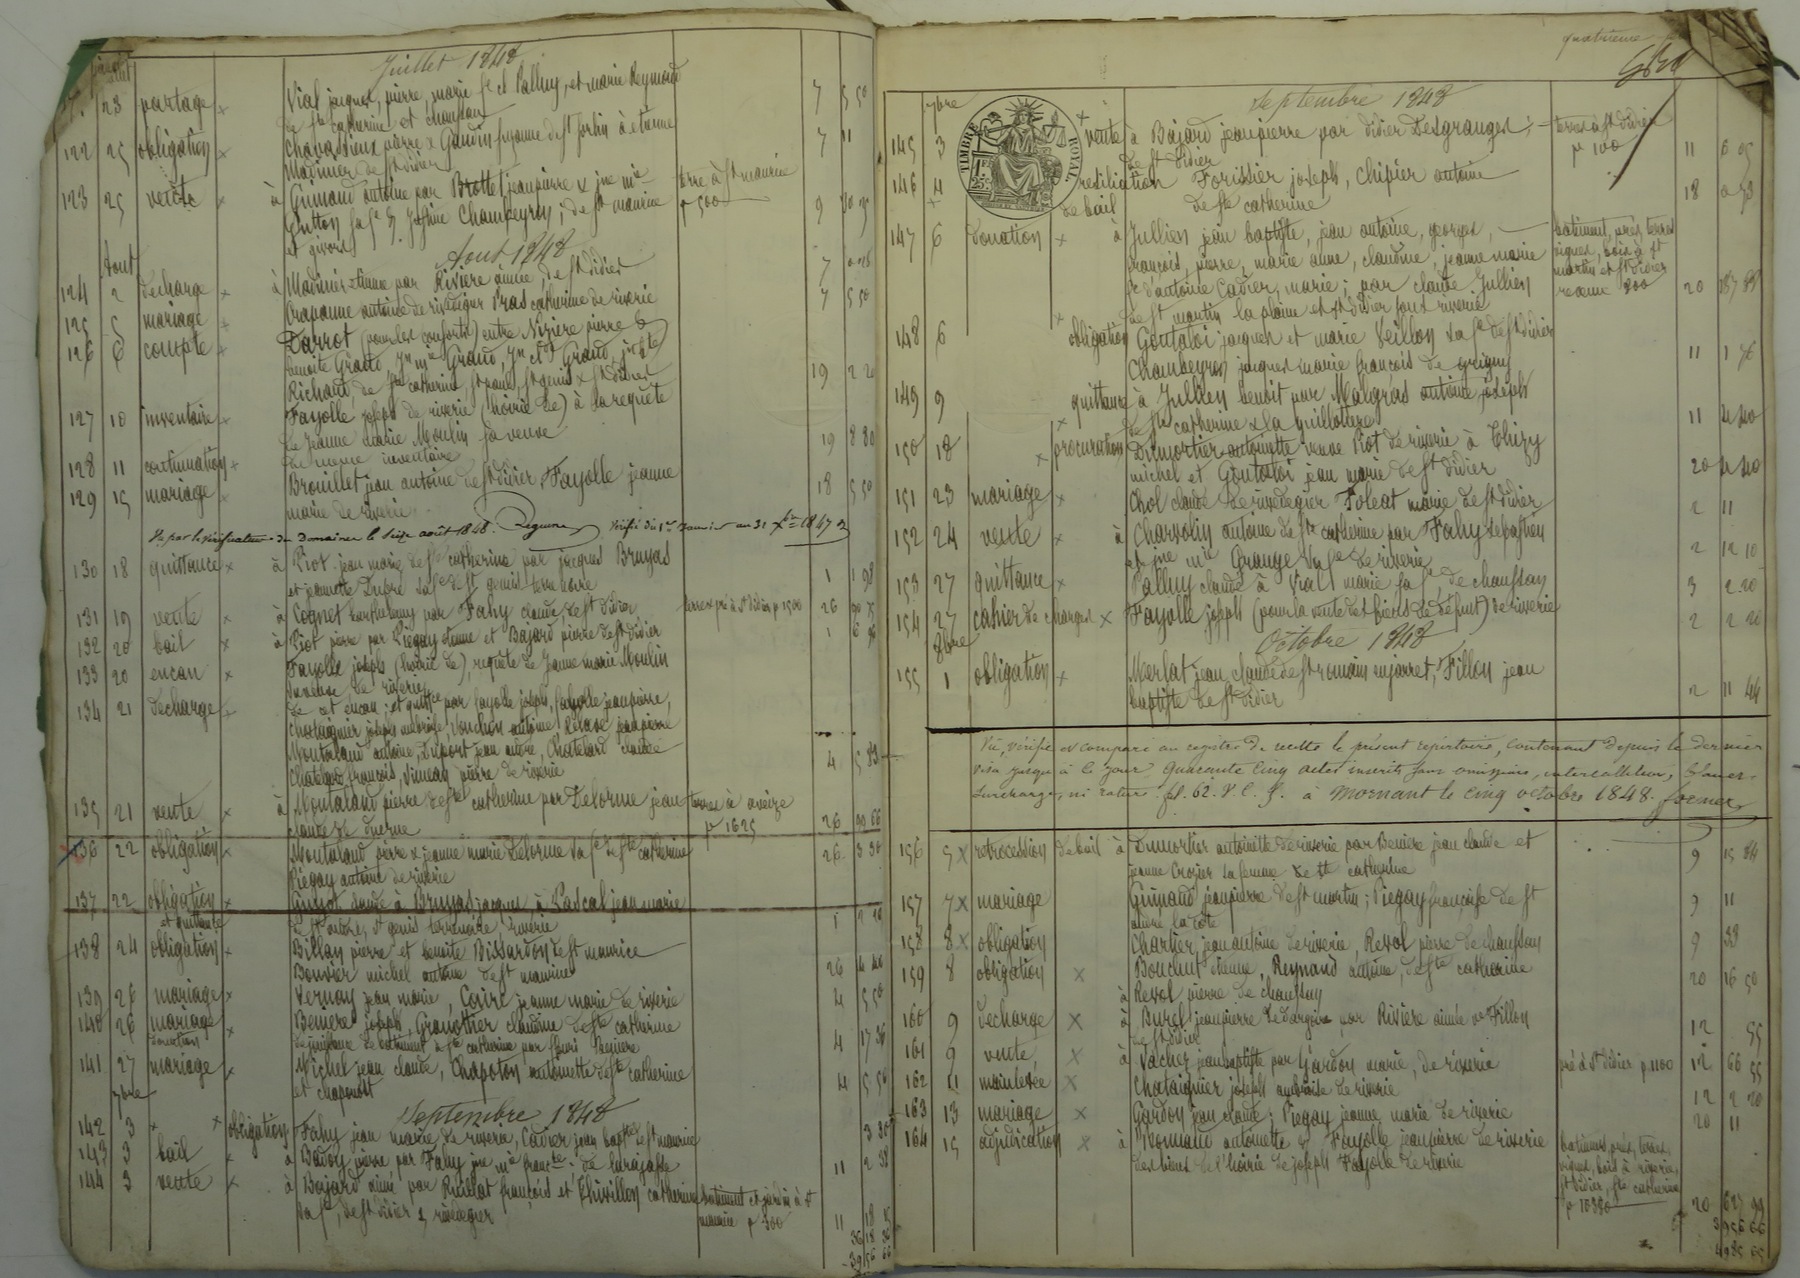 Juillet 1848
23 partage x Vial jacques, pierre, marie fe cl Palluy, et marie Reymond 7 5 50
de ste catherine et chaussan
122 25 obligation x Chavassieux pierre x Gaudin suzanne de st forhin à etienne 7 11
Madinier de st didier
123 25 vente x à Guinand antoine par Brottet jeanpierre x jne mie terre à st maurice
Gutton sa fe & justine Chambeyron, de st maurice p 500 9
et givors
Aout Aout 1848
124 2 décharge x à Madinier etienne par Rivière aimée, de st didier 7
125 5 mariage x Crapanne antoine de riverie Pras catherine de riverie 7 5 50
126 6 compte x Tarrot (pour les conforts) entre Nizière pierre &
benoite Grand, jn mie Grand, jn cde Grand, jn bte
Richard, de ste catherine, st paul, st genis x st didier 19 2 20
127 10 inventaire x Fayolle joseph de riverie (hoirie de) à la requête
de jeanne marie Moulin sa veuve 19 8 80
128 11 continuation x de meme inventaire
129 15 mariage x Brouillet jean antoine de st didier, Fayolle jeanne 18 5 50
marie de riverie
Vu par le vérificateur des Domaines le seize août 1848. Vérifié du 1er Janvier au 31 Xbre 1847
130 18 quittance x à Piot jean marie de ste catherine par jacques Bruyas
et jeannette Dupré sa fe de st genis terre noire 1 1 98
131 19 vente x à Cognet barthelemy par Fahy claude de st didier terre x pré à st didier p 1500 26 90 75
132 20 bail x à Piot pierre par Piegay etienne et Bajard pierre de st didier 1 6
133 20 encan x Fayolle joseph (hoirie de), requête de Jeanne marie Moulin
sa veuve de riverie
134 21 décharge x de cet encan, et quittce par fayolle joseph, fayolle jeanpierre,
Chataignier joseph ambroise, Souchon antoine, jeanpierre
Montaland antoine, Dupont jean andré, Chatelard claude
Chatelard françois, Simean pierre de riverie 4 5 83
135 21 vente x à Montaland pierre de ste catherine par Delorme jean terres à aveize
claude de duerne p 1625 26 90 66
136 22 obligation x Montaland pierre x jeanne marie Delorme sa fe de ste catherine 26 3 30
Piegay antoine de riverie
137 22 obligation x Guyot claude à Bruyas jacques, à Pascal jean marie
et quittance de st andré, st genis terrenoire, riverie 1 2 10
138 24 obligation x Billan pierre et benoite Bissardon de st maurice
Bouvier michel antoine de st maurice 26 4 40
139 26 mariage x Vernay jean marie, Coire jeanne marie de riverie 4 5 50
140 26 mariage x Beniere joseph, Granothier claudine de ste catherine
donation de jouissance de batiment à ste catherine par fleuri Paquiere 4 17 36
141 27 mariage x Michel jean claude, Chapoton antoinette de ste catherine 4 5 50
et chaponost
7bre Septembre 1848
142 3 x x obligation Fahy jean marie de riverie, Cadier jean bapte de st maurice 3 30
143 3 bail x à Badoy pierre par Fahy jne mie francse; de larajasse 11 2 38
144 3 vente x à Bajard aimé par Rullat françois et Thivillon catherine batiment et jardin à st
sa fe, de st didier & rivedegier maurice p 300 11 18 15
36 18 36
39 56 66
quatrième
7bre Septembre 1848
TIMBRE ROYAL
145 3 x vente à Bajard jeanpierre par didier Desgranges; terres à st didier
de st didier p 100 11 6 05
146 4 x resiliation Forissier joseph, Chipier antoine 18
de bail de ste catherine
147 6 donation x à Jullien jean baptiste, jean antoine, georges, batiment, prés, terres
françois, pierre, marie anne, claudine, jeanne marie vignes, bois à st
fe d'antoine Cadier, marie; par claude Jullien martin et st didier
de st martin la plaine et st didier sous riverie revenu 300 20 287 83
148 6 x obligation Goutaloi jacques et marie Veillon sa fe de st didier
Chambeyron jacques marie françois de grigny 11 1 76
149 9 quittance à Jullien benoit par Malgras antoine joseph
de ste catherine x la guillotière 11 4 40
150 18 x x procuration Dumortier antoinette veuve Piot de riverie à Thizy
michel et Goutaloi jean marie de st didier 20 4 40
151 23 mariage x Chol claude de rivedegier, Poleat marie de st didier 2 11
152 24 vente x à Charvolin antoine de ste catherine par Fahy sebastien
et jne mie Grange sa fe de riverie 2 12 10
153 27 quittance x Palluy claude à Vial marie sa fe, de chaussan 3 2 20
154 27 cahier de charges x Fayolle joseph (pour la vente des biens de défunt) de riverie 2 2 20
8bre Octobre 1848
155 1 obligation x Merlat jean claude de st romain en jarret, Fillon jean
baptiste de st didier 2 11 44
Vu, vérifié et comparé au registre de recette le présent répertoire, contenant depuis le dernier
visa jusqu'à ce jour quarante cinq actes inscrits sans omission, intercallation, blancs,
surcharge, ni rature. fol. 62. V. C. 3. à Mornant le cinq octobre 1848.
156 5 x retrocession de bail à Dumortier antoinette de riverie par Beniere jean claude et
jeanne Crozier sa femme de ste catherine 9 15 84
157 7 x mariage Guinand jeanpierre de st martin; Piegay françoise de st
andré la côte 9 11
158 8 x obligation Chartier jean antoine de riverie, Revol pierre de chaussan 9 33
159 8 obligation x Bouchut etienne, Reynard antoine, de ste catherine
à Revol pierre de chaussan 20 16 50
160 9 décharge x à Burel jeanpierre de dargoire par Rivière aimée ve Fillon
de st didier 12 55
161 9 vente x à Vacher jean baptiste par Gardon marie, de riverie pré à st didier p 1100 12 66 55
162 11 mainlevée x Chataignier joseph ambroise de riverie 12 2 20
163 13 mariage x Gardon jean claude; Piegay jeanne marie de riverie 20 11
164 15 adjudication x à Normand antoinette & Fayolle jeanpierre de riverie batiment, prés, terres,
des biens de l'hoirie de joseph Fayolle de riverie vignes, bois à riverie,
st didier, ste catherine
p 10390 20 627 99
39 56 66
49 85 65